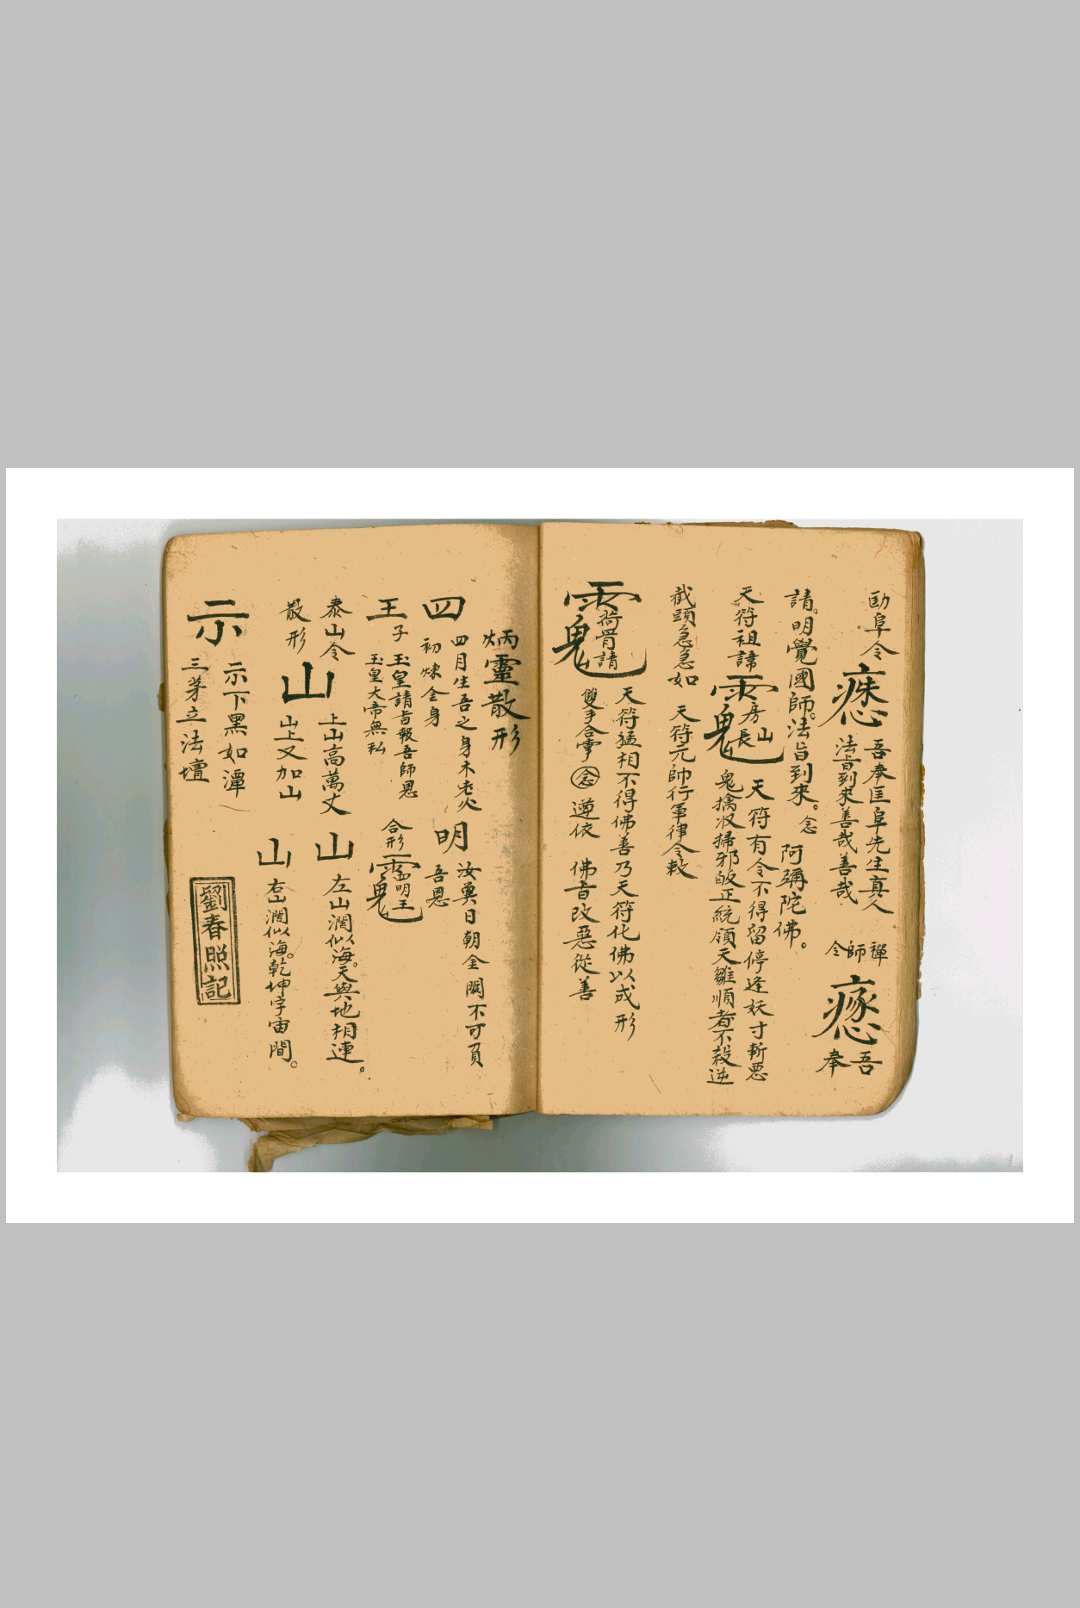 阜令
吾奉匡阜先生真人
法旨到來善哉善哉
禪師令
吾奉
請。明覺國師。法旨到來。念
阿彌陀佛。
天符祖諱
房山長
天符有令不得留停逢妖寸斬惡
鬼擒收掃邪皈正統領天雛順者不殺逆
截頭急急如
天符元帥行軍律令敕
請
天符猛相不得佛善乃天符化佛以成形
雙手合掌
念
遵依
佛旨改惡從善
炳靈散形
四
四月生吾之身木老火
初煉金身
明
汝奠日朝金闕不可負
吾恩
王
子
玉皇請旨報吾師恩
玉皇大帝無私
合形
明王
泰山令
散形
山
上山高萬丈
山上又加山
山
左山濶似海。天與地相連。
山
右山濶似海。乾坤宇宙間。
示
示下黑如潭
三茅立法壇
劉春照記